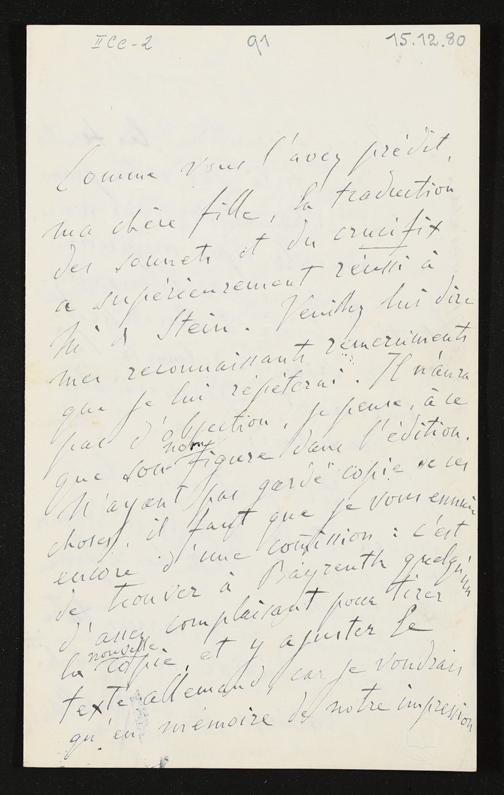 IICc-2 91 15.12.80
Comme vous l'avez prédit,
ma chère fille, la traduction
des sonnets et du crucifix
a supérieurement réussi à
Mr d Stein. Veuillez lui dire
mes reconnaissants remerciments
que je lui répéterai. Il n'aura
pas d'objection, je pense, à ce
que son nom figure dans l'édition.
N'ayant pas gardé copie de ces
choses, il faut que je vous ennuie
encore d'une comission : c'est
de trouver à Bayreuth quelqu'un
d'assez complaisant pour tirer
la nouvelle copie, et y ajuster le
texte allemand, car je voudrais
qu'en mémoire de notre impression